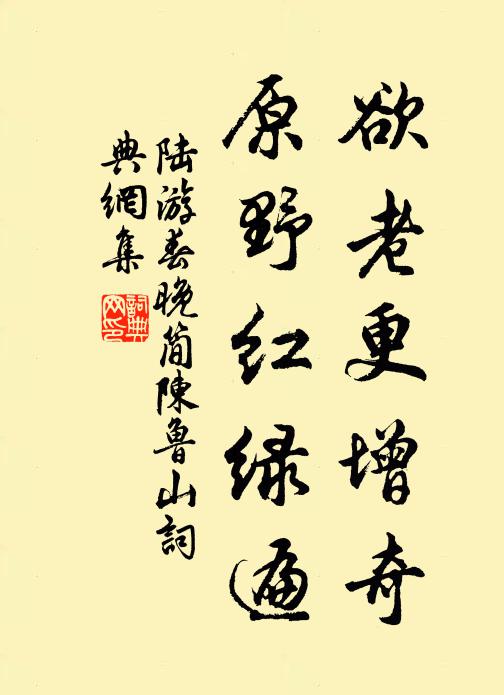 欲老更增奇
原野红绿遍
陆游春晚简陈鲁山词
典網集
詞典
网印